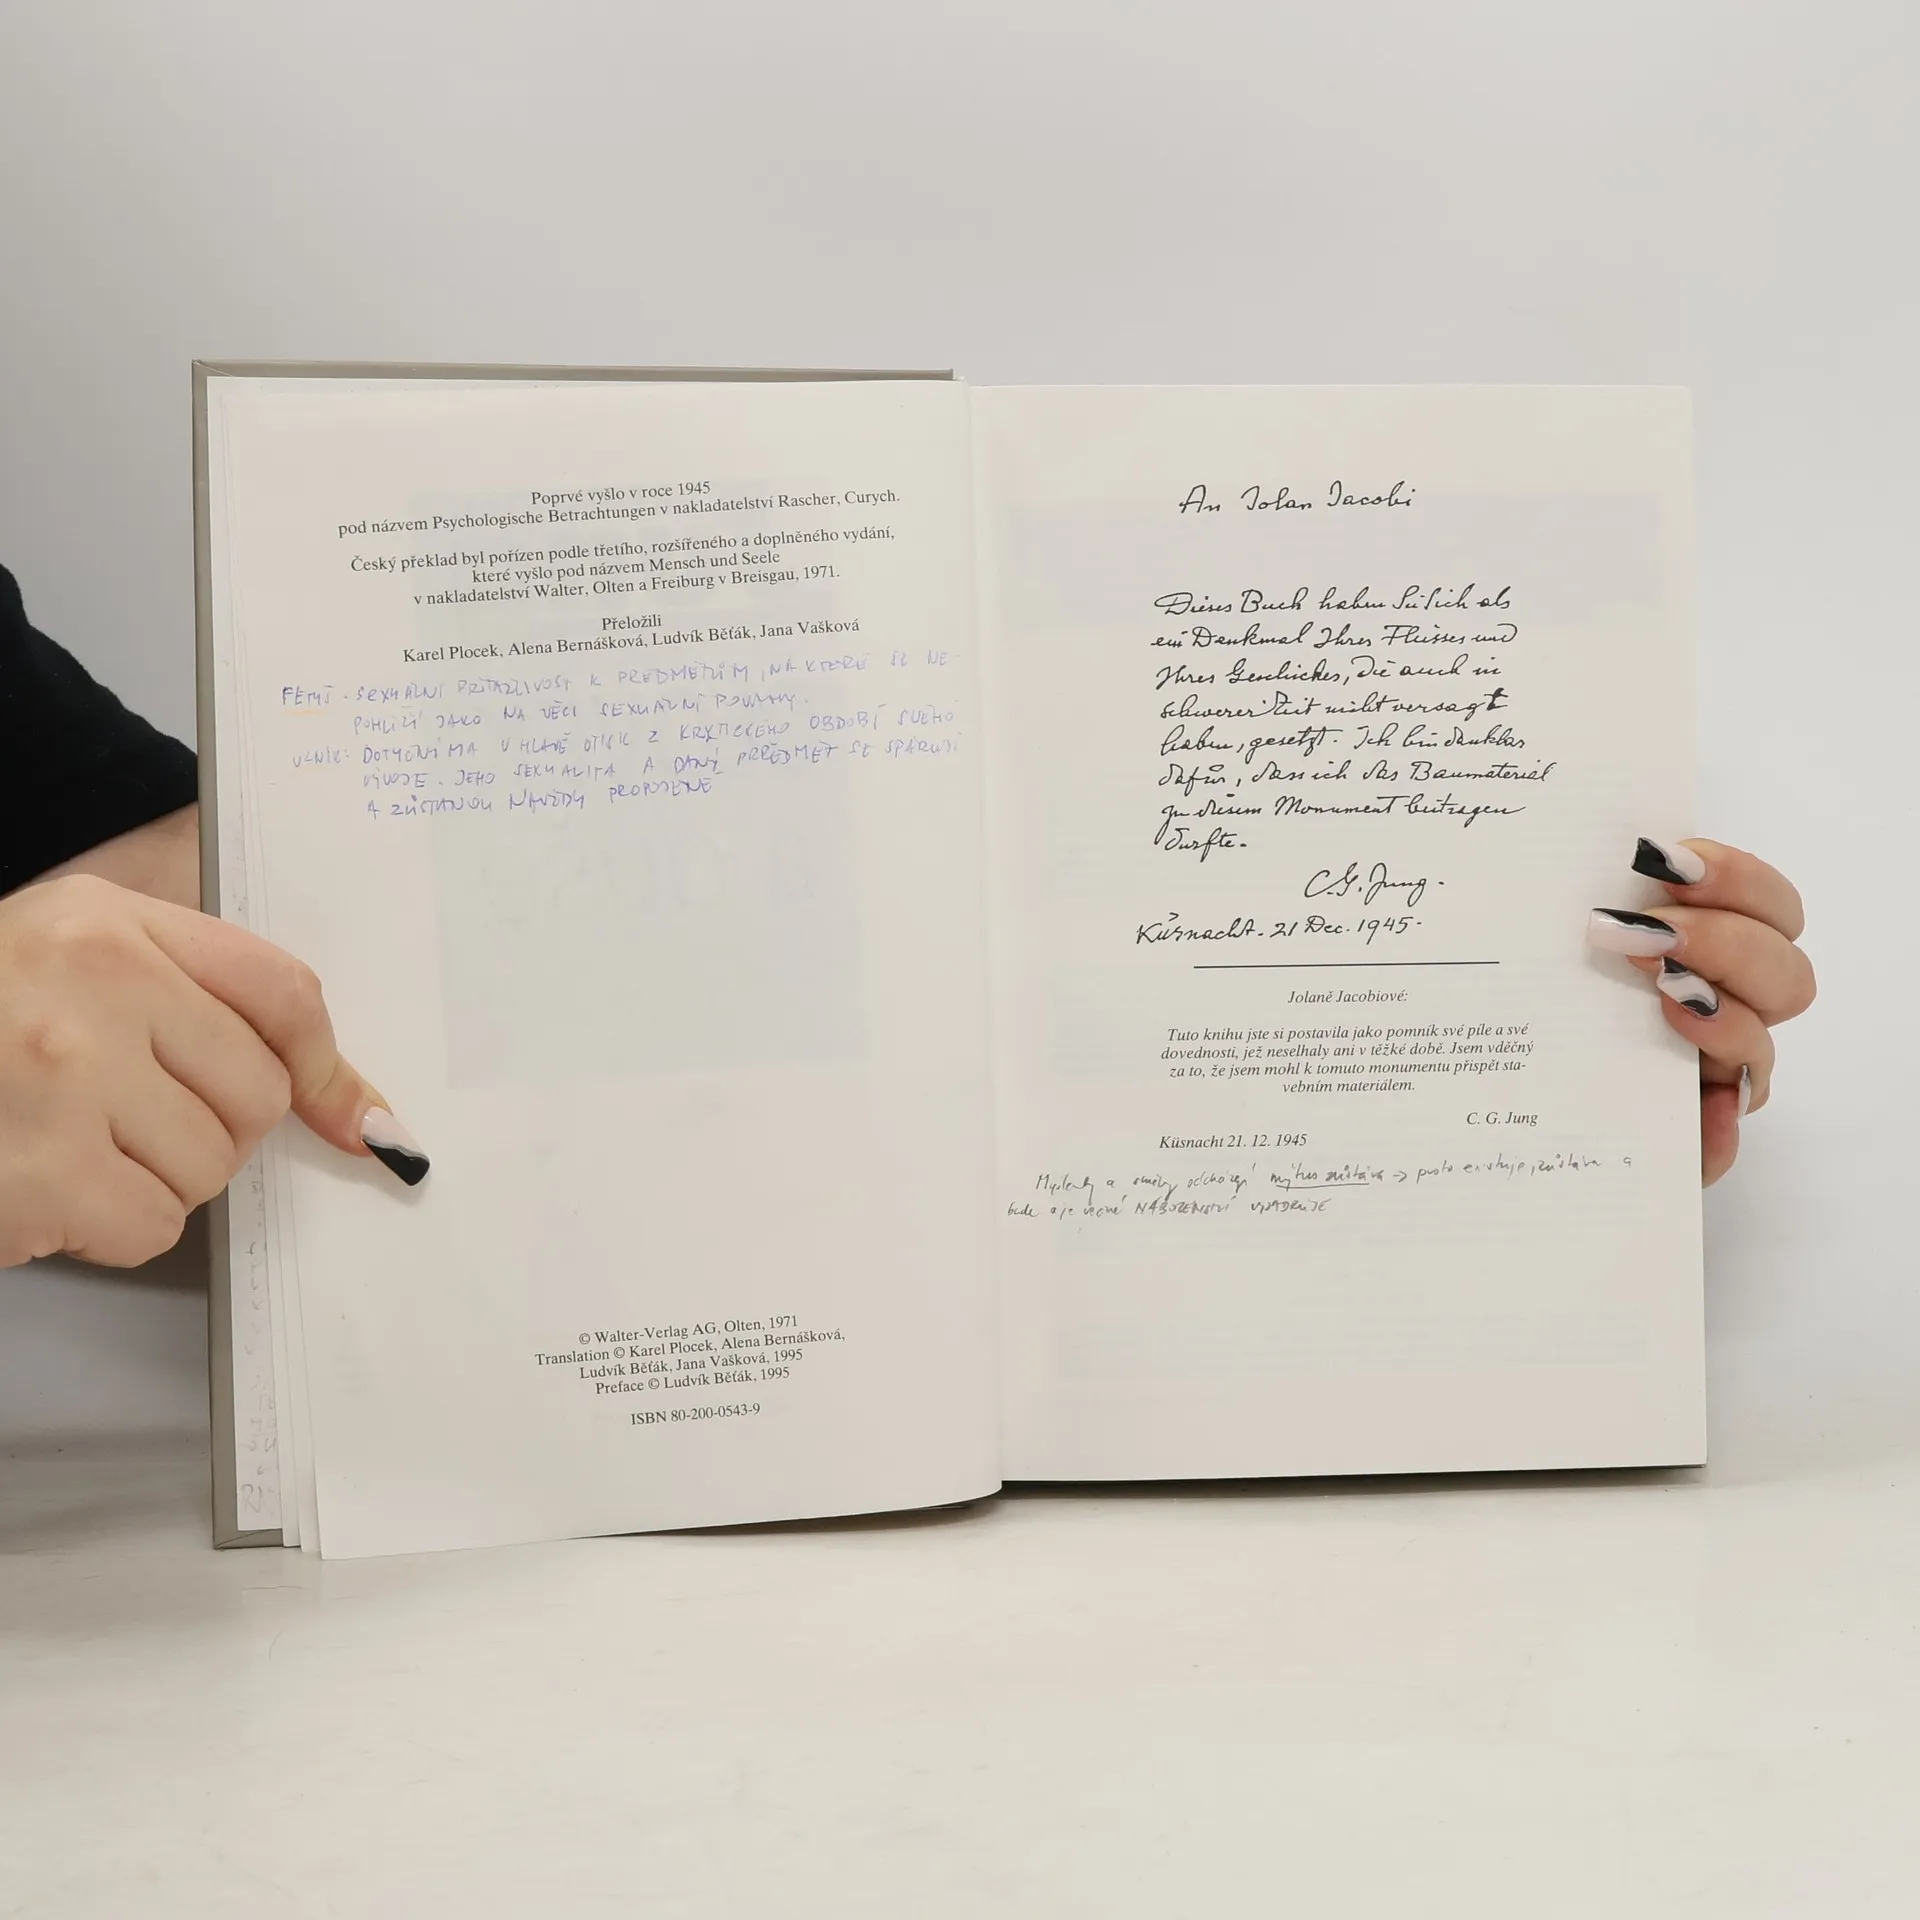 Poprvé vyšlo v roce 1945
pod názvem Psychologische Betrachtungen v nakladatelství Rascher, Curych.
Český překlad byl pořízen podle třetího, rozšířeného a doplněného vydání,
které vyšlo pod názvem Mensch und Seele
v nakladatelství Walter, Olten a Freiburg v Breisgau, 1971.
Přeložili
Karel Plocek, Alena Bernášková, Ludvík Běťák, Jana Vašková
FETYŠ - SEXUÁLNÍ PŘITAŽLIVOST K PŘEDMĚTŮM, NA KTERÉ SE NE-
POHLÍŽÍ JAKO NA VĚCI SEXUÁLNÍ POVAHY.
VZNIK: DOTYČNÍ MA V HLAVĚ OTISK Z KRYTICKÉHO OBDOBÍ SVÉHO
VÝVOJE. JEHO SEXUALITA A DANÝ PŘEDMĚT SE SPÁRUJÍ
A ZŮSTANOU NAVŽDY PROPOJENÉ
© Walter-Verlag AG, Olten, 1971
Translation © Karel Plocek, Alena Bernášková,
Ludvík Běťák, Jana Vašková, 1995
Preface © Ludvík Běťák, 1995
ISBN 80-200-0543-9
An Jolan Jacobi
Dieses Buch haben Sie sich als
ein Denkmal Ihres Fleisses und
Ihres Geschickes, die auch in
schwerer Zeit nicht versagt
haben, gesetzt. Ich bin dankbar
dafür, dass ich das Baumaterial
zu diesem Monument beitragen
durfte.
C. G. Jung.
Küsnacht. 21 Dec. 1945.
Jolaně Jacobiové:
Tuto knihu jste si postavila jako pomník své píle a své
dovednosti, jež neselhaly ani v těžké době. Jsem vděčný
za to, že jsem mohl k tomuto monumentu přispět sta-
vebním materiálem.
C. G. Jung
Küsnacht 21. 12. 1945
Myšlenky a směry odcházejí mýtus zůstává -> proto existuje, zůstává a
bude a je věčné NÁBOŽENSTVÍ VYJADŘUJE